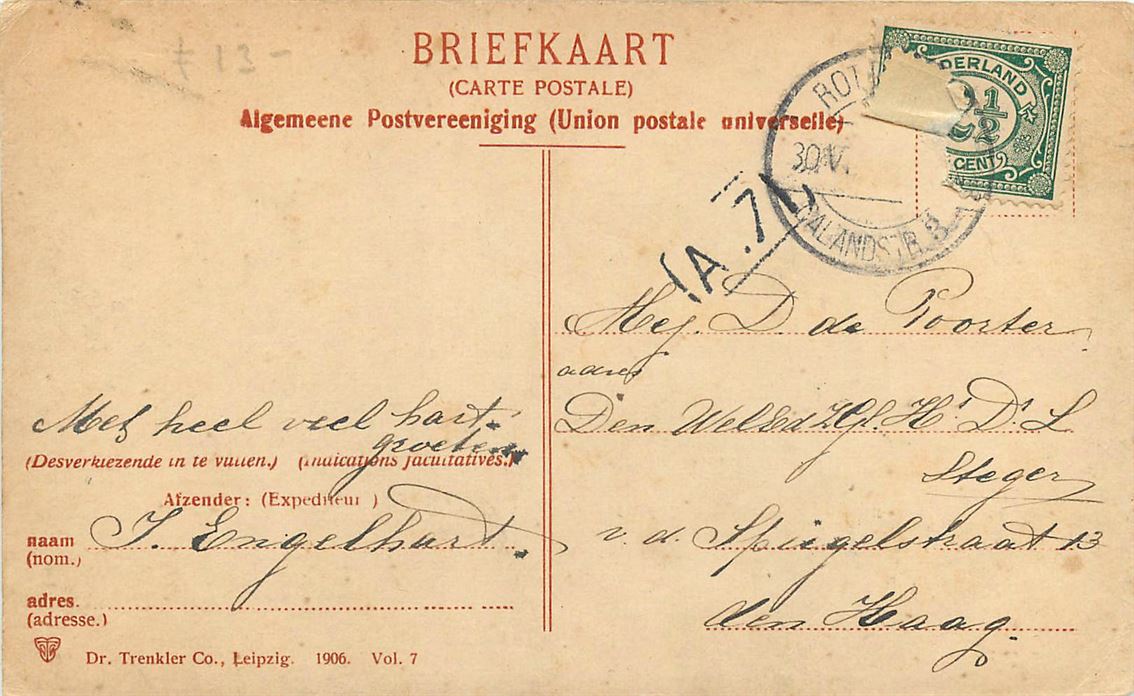 ƒ 13-
BRIEFKAART
(CARTE POSTALE)
Algemeene Postvereeniging (Union postale universelle)
DERLAND
1/2
CENT
ROT
30
CALANDSTR.
A.7
Mej. D. de Poorter
adres
Den WelEd
Steger
v. d. Spiegelstraat 13
den Haag
Met heel veel hart.
groeten
(Desverkiezende in te vullen.) (Indications facultatives.)
Afzender: (Expediteur )
naam J. Engelhart.
(nom.)
adres.
(adresse.)
Dr. Trenkler Co., Leipzig. 1906. Vol. 7